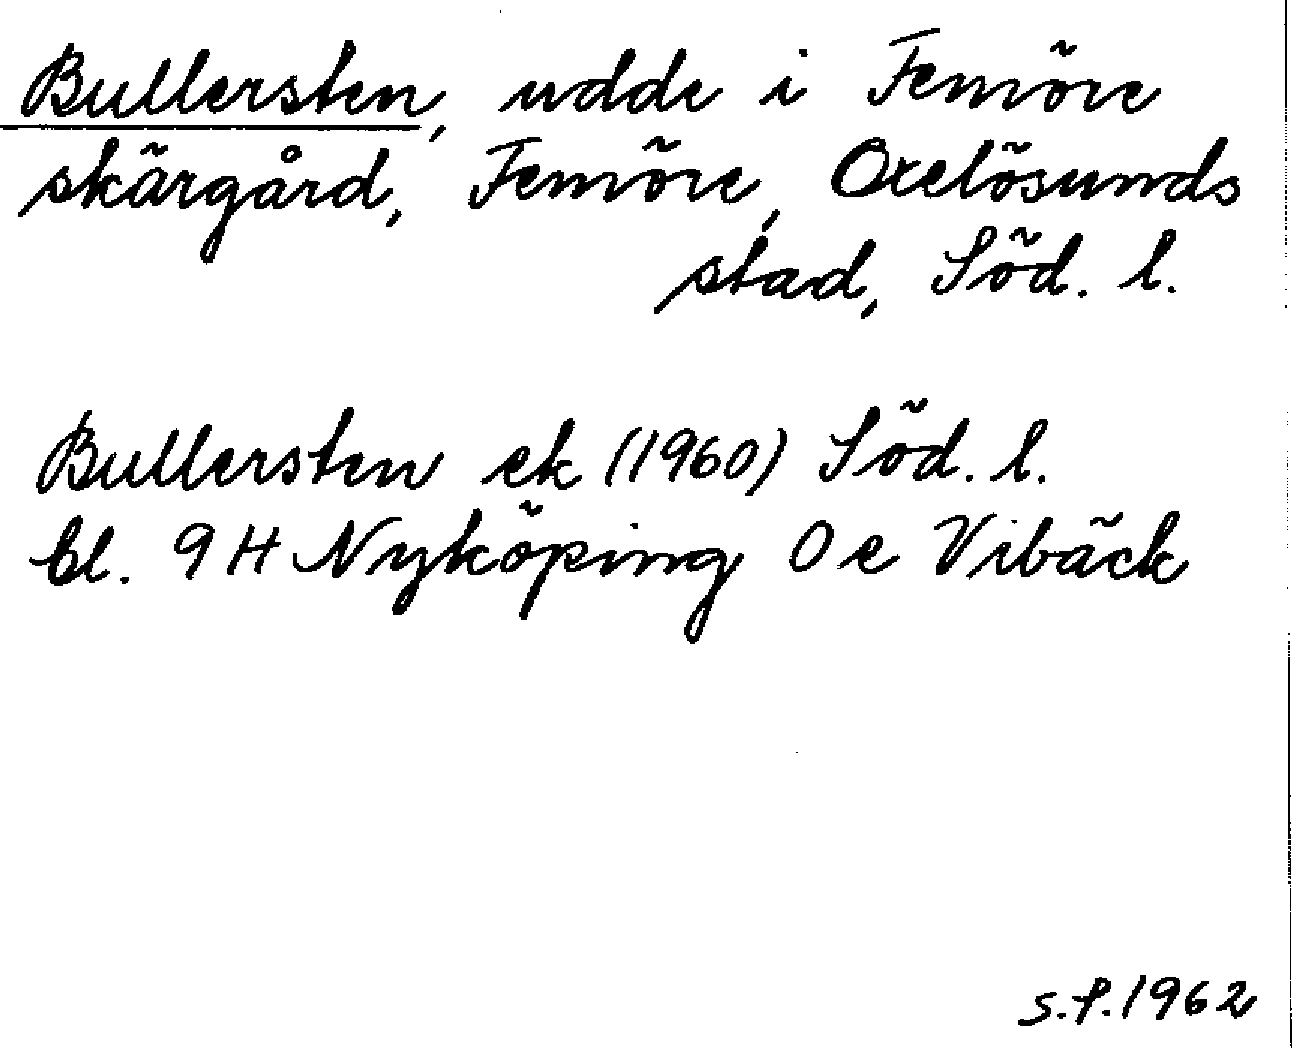 Bullersten, udde i Femöre
skärgård, Femöre, Oxelösunds
stad, Söd. l.
Bullersten ek (1960) Söd. l.
bl. 9 H Nyköping 0 e Vibäck
S.P. 1962